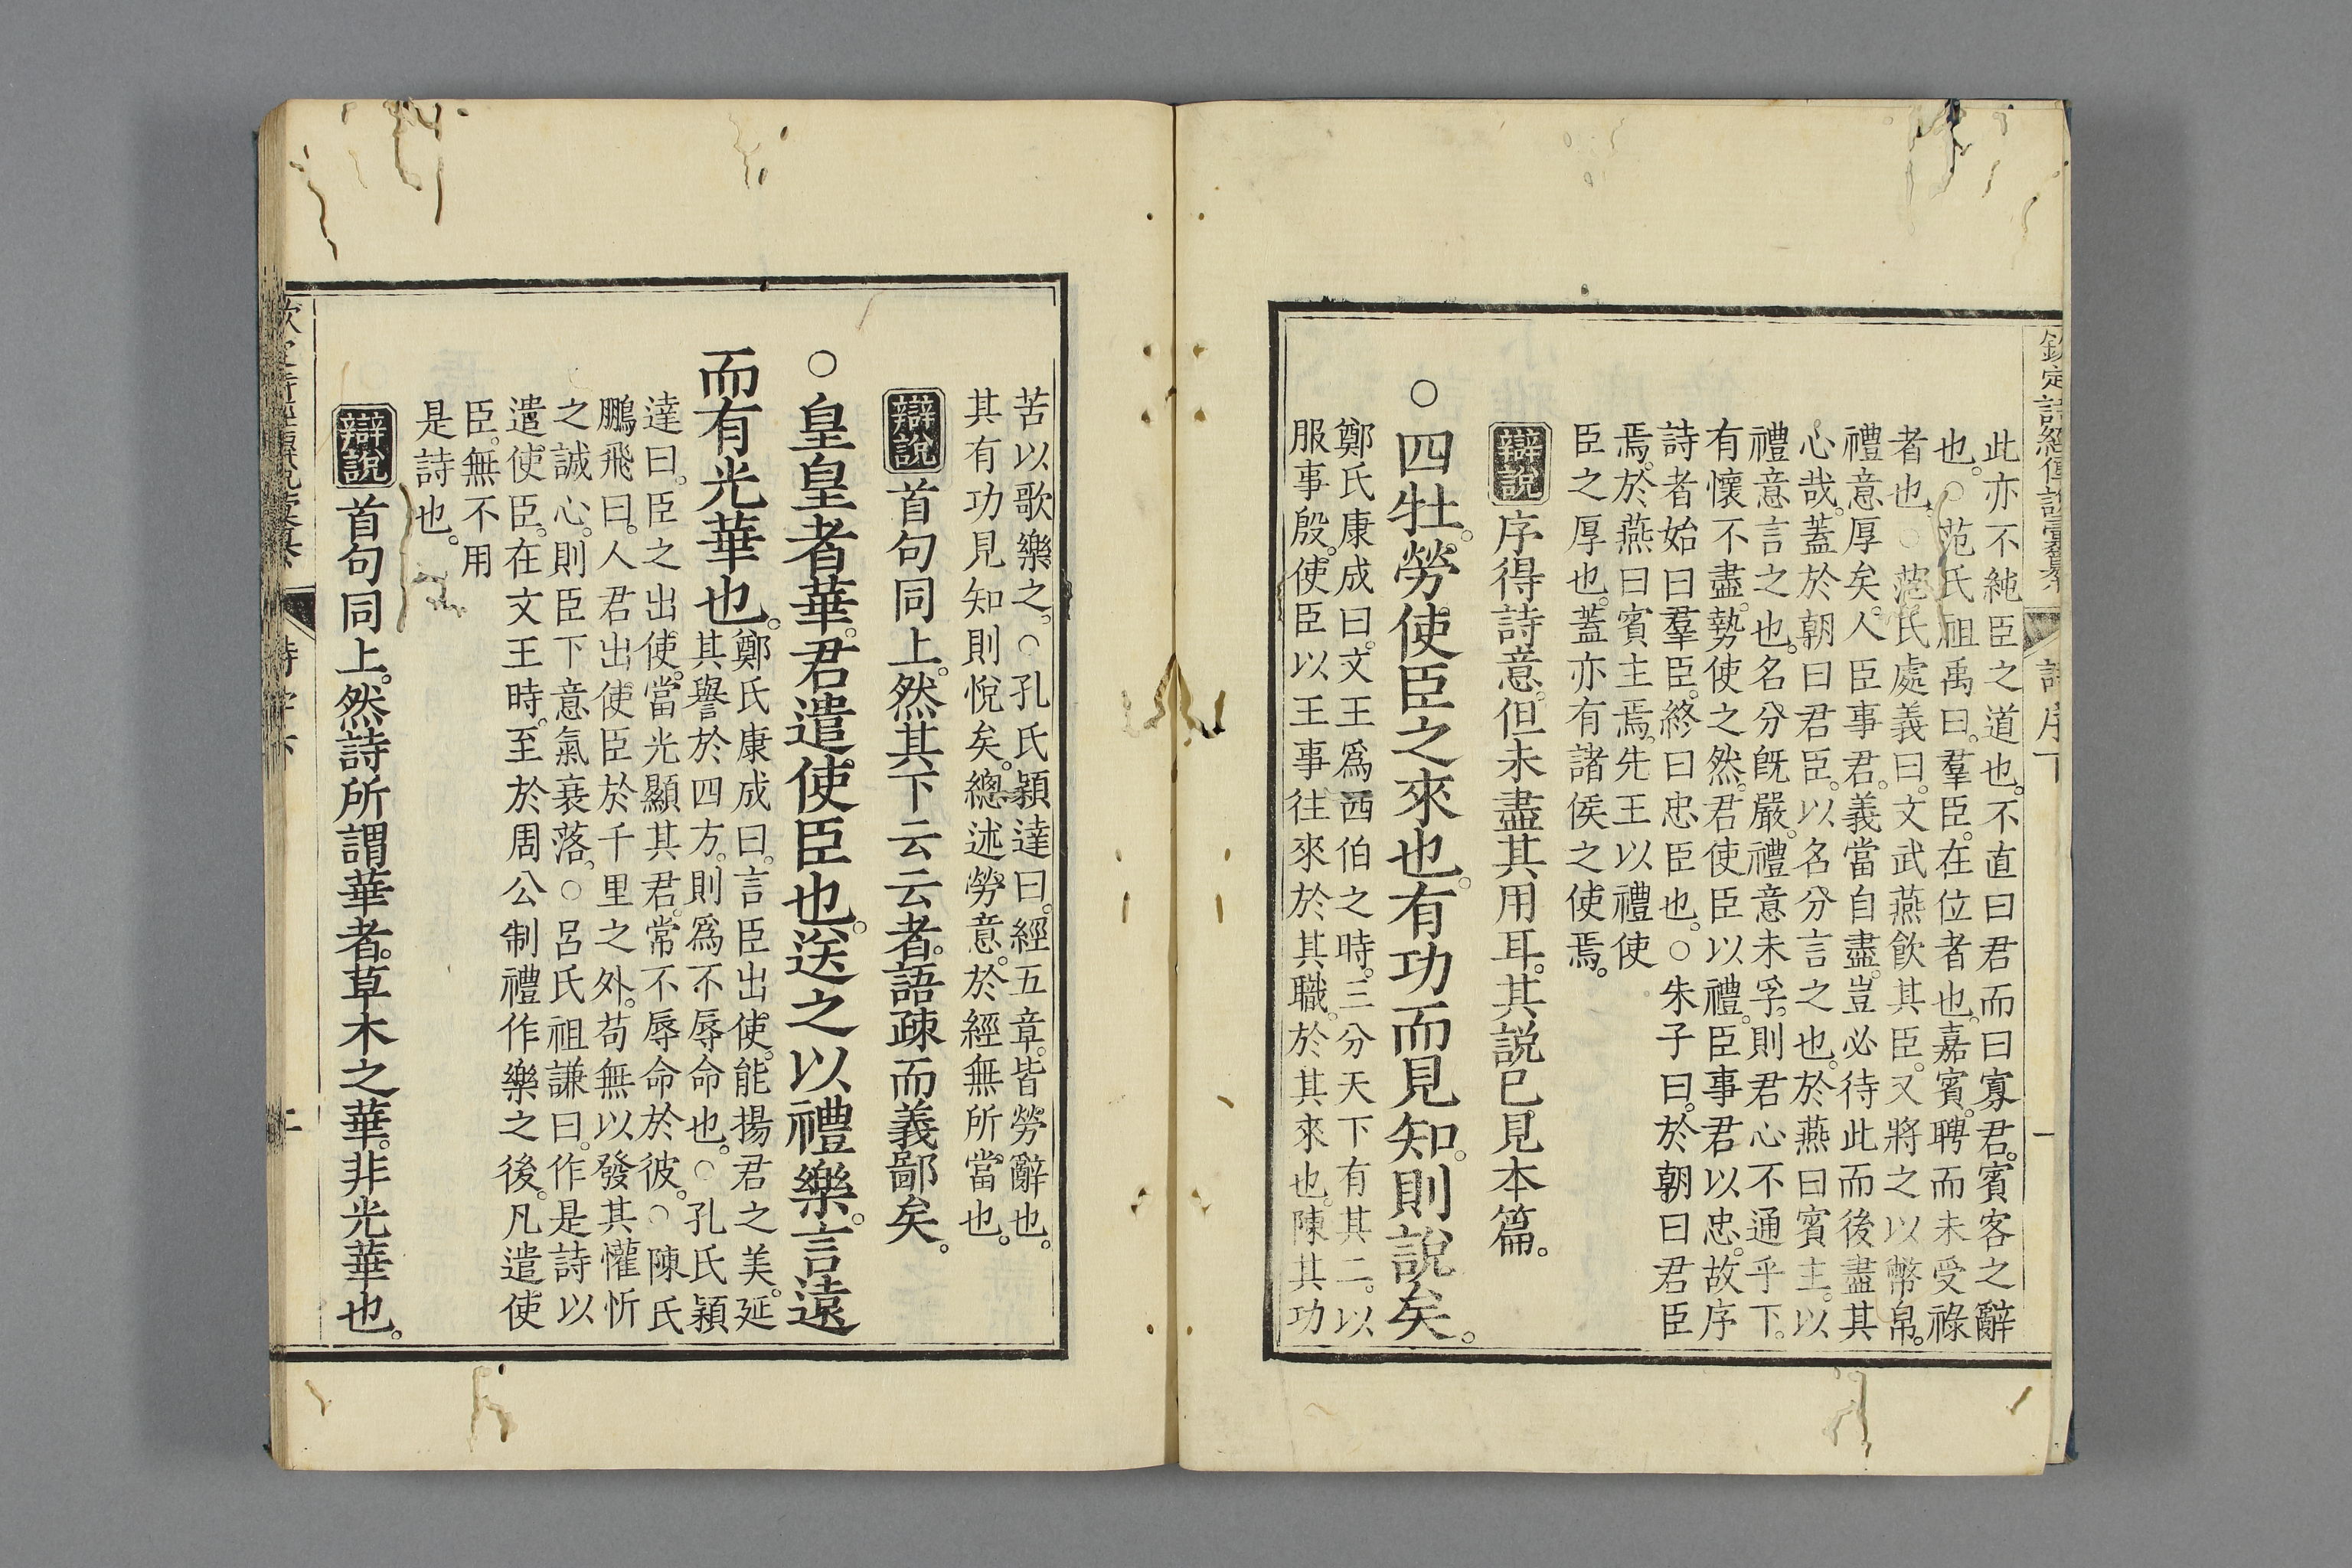 欽定詩經傳說彙纂
詩序下
一
此亦不純臣之道也。不直曰君而曰寡君。賓客之辭
也。○范氏祖禹曰。羣臣。在位者也。嘉賓。聘而未受祿
者也。○范氏處義曰。文武燕飲其臣。又將之以幣帛。
禮意厚矣。人臣事君。義當自盡。豈必待此而後盡其
心哉。蓋於朝曰君臣。以名分言之也。於燕曰賓主。以
禮意言之也。名分旣嚴。禮意未孚。則君心不通乎下。
有懷不盡。勢使之然。君使臣以禮。臣事君以忠。故序
詩者始曰羣臣。終曰忠臣也。○朱子曰。於朝曰君臣
焉。於燕曰賓主焉。先王以禮使
臣之厚也。蓋亦有諸侯之使焉。
辯說序得詩意。但未盡其用耳。其說已見本篇。
○四牡。勞使臣之來也。有功而見知。則說矣。
鄭氏康成曰。文王爲西伯之時。三分天下有其二。以
服事殷。使臣以王事往來於其職。於其來也。陳其功
苦以歌樂之。○孔氏穎達曰。經五章。皆勞辭也。
其有功見知則悅矣。總述勞意。於經無所當也。
辯說首句同上。然其下云云者。語疎而義鄙矣。
○皇皇者華。君遣使臣也。送之以禮樂。言遠
而有光華也。鄭氏康成曰。言臣出使。能揚君之美。延
其譽於四方。則爲不辱命也。○孔氏穎
達曰。臣之出使。當光顯其君。常不辱命於彼。○陳氏
鵬飛曰。人君出使臣於千里之外。苟無以發其懽忻
之誠心。則臣下意氣衰落。○呂氏祖謙曰。作是詩以
遣使臣。在文王時。至於周公制禮作樂之後。凡遣使
臣。無不用
是詩也。
辯說首句同上。然詩所謂華者。草木之華。非光華也。